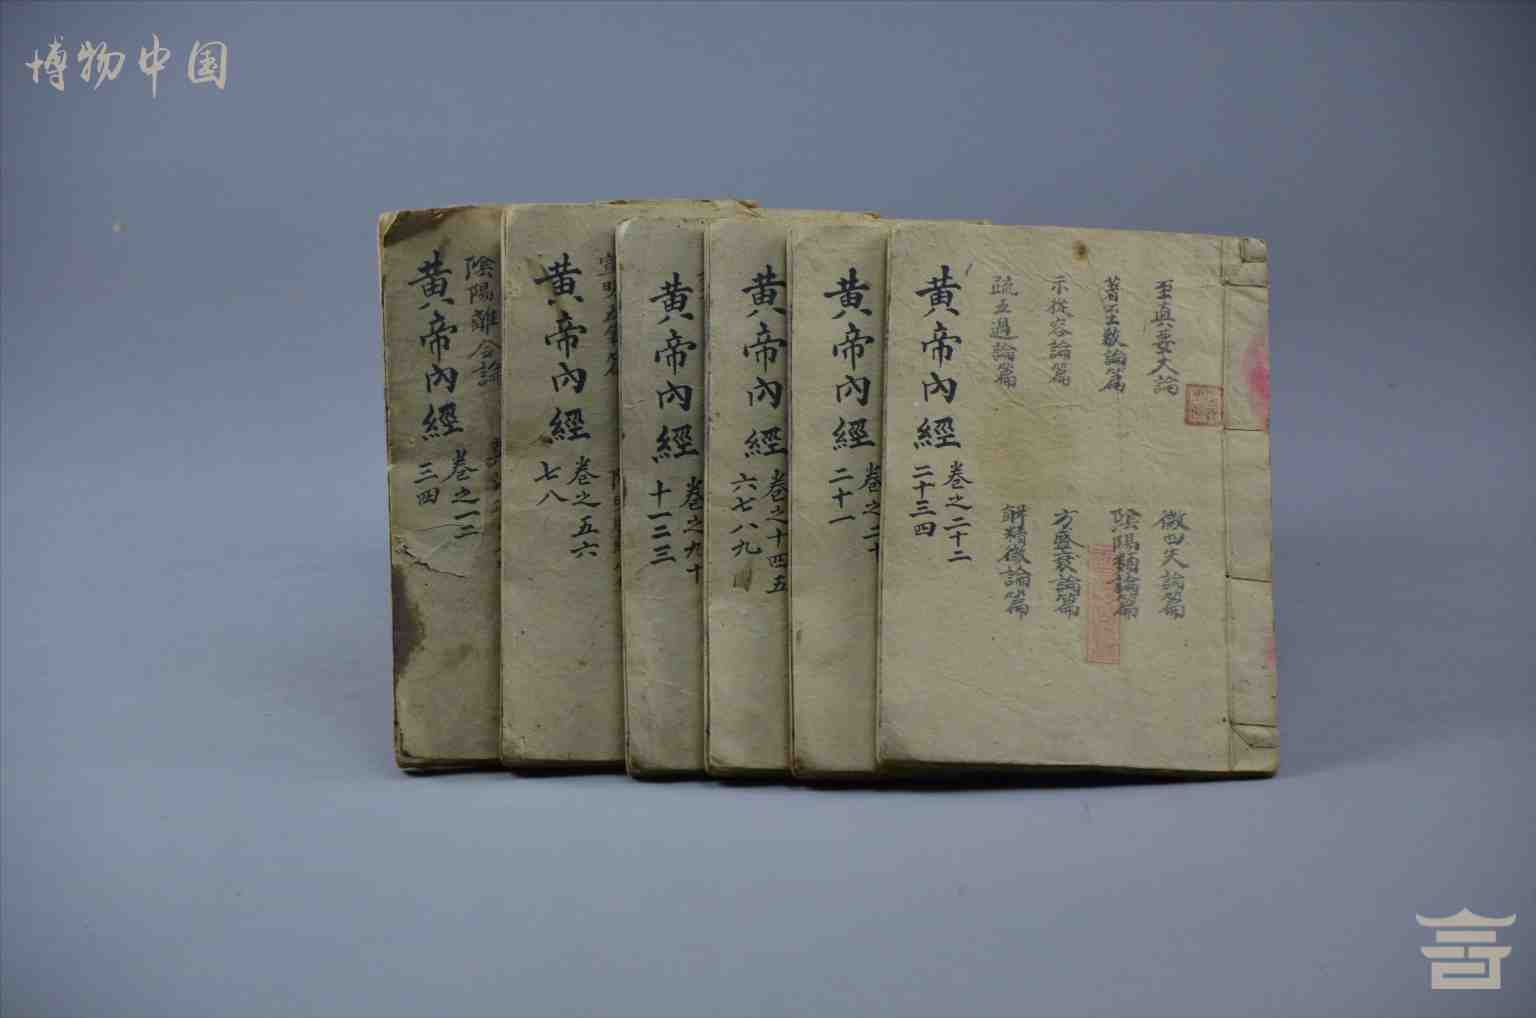 博物中国
至真要大論
徵四失論篇
著至教論篇
陰陽類論篇
示從容論篇
方盛衰論篇
疏五過論篇
解精微論篇
黄帝內經
卷之二十二
二十三四
黄帝內經
卷之二十
二十一
黄帝內經
卷之十四五
六七八九
黄帝內經
卷之九十
十一二三
黄帝內經
卷之五六
七八
陰陽離合論
黄帝內經
卷之一二
三四